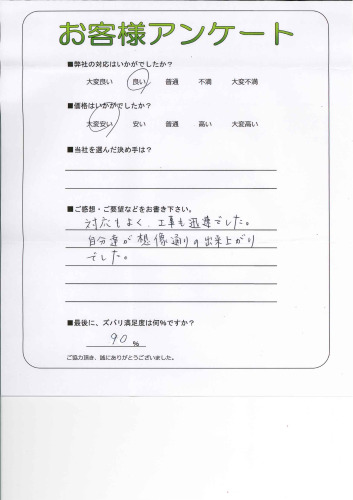 お客様アンケート
■弊社の対応はいかがでしたか?
大変良い 良い 普通 不満 大変不満
■価格はいかがでしたか?
大変安い 安い 普通 高い 大変高い
■当社を選んだ決め手は?
■ご感想・ご要望などをお書き下さい。
対応もよく、工事も迅速でした。
自分達が想像通りの出来上がり
でした。
■最後に、ズバリ満足度は何%ですか?
90 %
ご協力頂き、誠にありがとうございました。